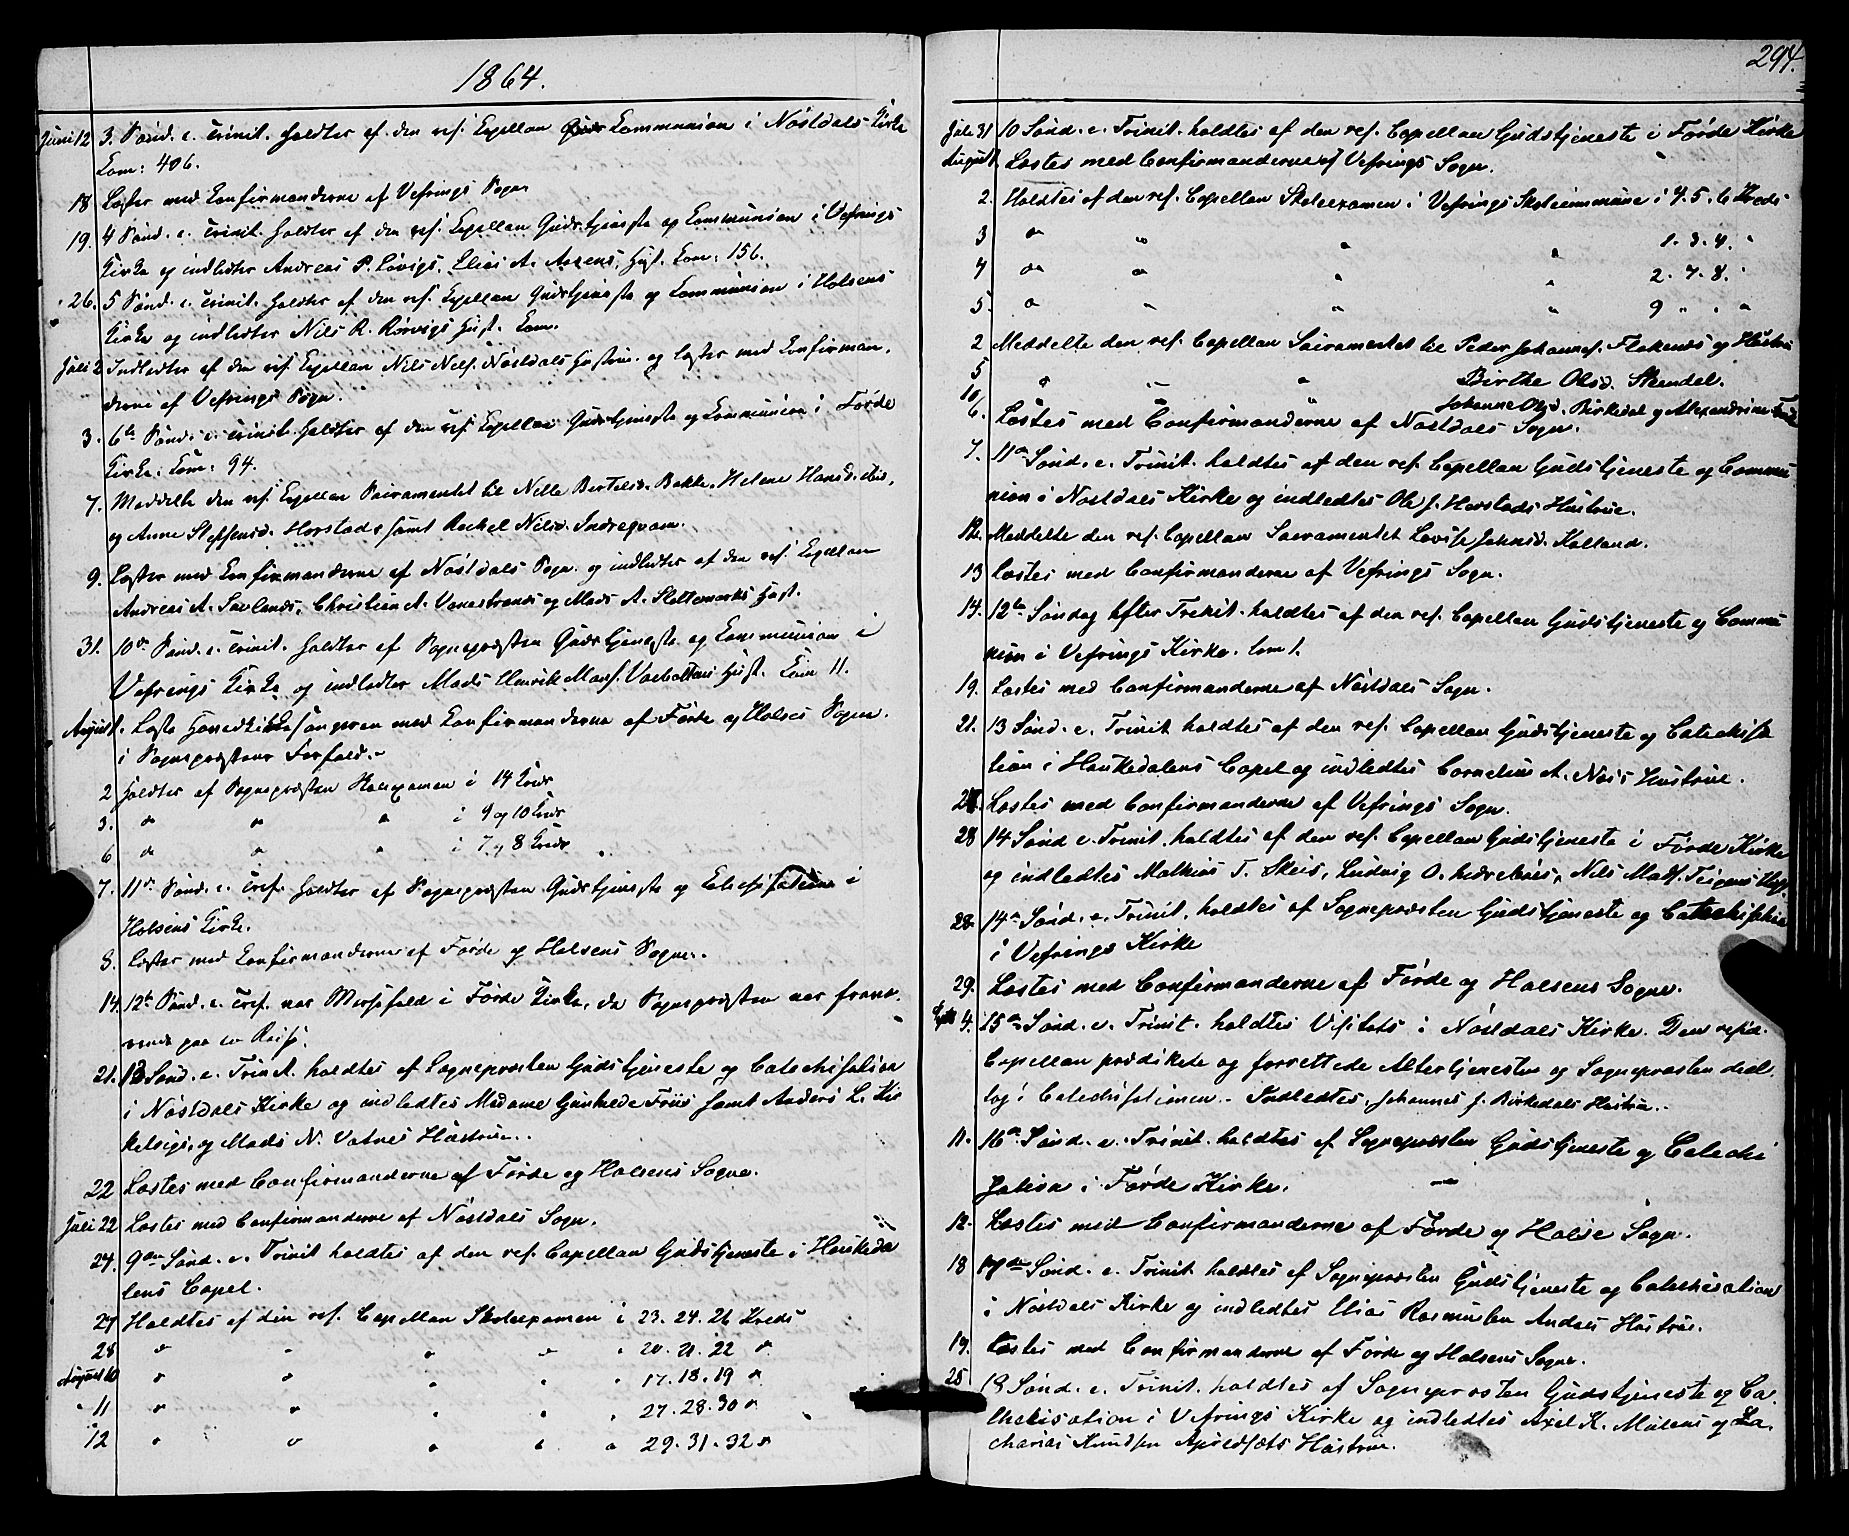 1864.
Juni 12 3. Sønd. e. Trinit. holdtes af den res. Capellan Communion i Nøstdals Kirke
Com: 406.
18 Læstes med Confirmanderne af Vefrings Sogn
19. 4 Sønd. e. Trinit. holdtes af den res. Capellan Gudstjeneste og Communion i Vefrings
Kirke og indledtes Andreas P. Løvigs, Elias A. Aasens, Hust. Com: 156.
26. 5 Sønd. e. Trinit. holdtes af den res. Capellan Gudstjeneste og Communion i Holsens
Kirke og indledtes Nils R. Rørvigs Hust. Com.
Juli 2 Indledtes af den res. Capellan Nils Nils. Nøstdals Hustru og læstes med Confirman,
derne af Vefrings Sogn.
3. 6te Sønd. e. Trinit. holdtes af den res. Capellan Gudstjeneste og Communion i Førde
Kirke: Com: 94.
7. Meddelte den res. Capellan Sacramentet til Nille Bertelsd. Bakke, Helene Hansd. ibid,
og Anne Steffensd. Horstads samt Rachel Nilsd. Indreqvam.
9. Læstes med Confirmanderne af Nøstdals Sogn og indledtes af den res. Capellan
Andreas A. Savlands, Christian A. Vonestrands og Mads A. Slettemarks Hust.
31. 10de Sønd. e. Trinit. holdtes af Sognepræsten Gudstjeneste og Communion i
Vefrings Kirke og indledtes Mads Henrik Mons. Hust. Com 11.
August. Læste Hovedkirkesangeren med Confirmanderne af Førde og Holsens Sogne.
i Sognepræstens Forfald.
2 Holdtes af Sognepræsten Skoleexamen i 14 Kreds
3. " " " i 9 og 10 Kreds
6 " " " i 7 og 8 Kreds
7. 11te Sønd. e. Tref. holdtes af Sognepræsten Gudstjeneste og Catechisation i
Holsens Kirke.
8. Læstes med Confirmanderne af Førde og Holsens Sogne.
14. 12te Sønd. e. Tref. var Messefald i Førde Kirke, da Sognepræsten var fravæ,
rende paa en Reise.
21. 13 Sønd. e. Trinit. holdtes af Sognepræsten Gudstjeneste og Catechisation
i Nøstdals Kirke og indledtes Madame Gunhilde Friis samt Anders L. Kir
og Mads N. Vatnes Hustruer.
22 Læstes med Confirmanderne af Førde og Holsens Sogne.
Juli 22 Læstes med Confirmanderne af Nøstdals Sogn.
24. 9de Sønd. e. Trinit holdtes af den res. Capellan Gudstjeneste i Haukeda
lens Capel.
27 Holdtes af den res. Capellan Skoleexamen i 23. 24. 26 Kreds
28 " " " " " 20. 21. 22 "
August 10 " " " " " 17. 18. 19 "
" 11 " " " " " 27. 28. 30 "
" 12 " " " " " 29. 31. 32 "
294.
Juli 31 10 Sønd. e. Trinit. holdtes af den res. Capellan Gudstjeneste i Førde Kirke
August 1. Læstes med Confirmanderne af Vefrings Sogn.
2. Holdtes af den res. Capellan Skoleexamen i Vefrings Skolecommune i 4. 5. 6 Kreds
3 " " " " 1. 3. 4. "
4 " " " " 2. 7. 8. "
5. " " " " 9 " " "
2 Meddelte den res. Capellan Sacramentet til Peder Johannes. Flokenes og Hustru
5 " " " Birthe Olsd. Skendel.
10 Johanne Olsd. Birkedal og Alexandrine
6. Læstes med Confirmanderne af Nøstdals Sogn.
7. 11te Sønd. e. Trinit. holdtes af den res. Capellan Gudstjeneste og Commu
nion i Nøstdals Kirke og indledtes Ole J. Horstads Hustrue.
12. Meddelte den res. Capellan Sacramentet Lovise Johnsd. Kalland.
13 Læstes med Confirmanderne af Vefrings Sogn.
14. 12te Søndag efter Trinit. holdtes af den res. Capellan Gudstjeneste og Commu
nion i Vefrings Kirke. Com 1.
19. Læstes med Confirmanderne af Nøstdals Sogn.
21. 13 Sønd. e. Trinit holdtes af den res. Capellan Gudstjeneste og Catechisa
tion i Haukedalens Capel og indledtes Cornelius A. Næss Hustrue.
27. Læstes med Confirmanderne af Vefrings Sogn.
28 14 Sønd e. Trinit. holdtes af den res. Capellan Gudstjeneste i Førde Kirke
og indledtes Mathias T. Skeis, Ludvig O. Nils Mats. Teigens Hust.
28. 14de Sønd. e. Trinit. holdtes af Sognepræsten Gudstjeneste og Catechisation
i Vefrings Kirke
29. Læstes med Confirmanderne af Førde og Holsens Sogne.
Sept 4. 15de Sønd. e. Trinit. holdtes Visitats i Nøstdals Kirke. Den resid.
Capellan prædikede og forrettede Altertjenesten og Sognepræsten deel,
tog i Catechisationen. Indledtes, Johannes J. Birkedals Hustru.
11. 16de Sønd. e. Trinit. holdtes af Sognepræsten Gudstjeneste og Catechi
sation i Førde Kirke.
12. Læstes med Confirmanderne af Førde og Holse Sogn.
18 17de Sønd. e. Trinit holdtes af Sognepræsten Gudstjeneste og Catechisation
i Nøstdals Kirke og indledtes Elias Rasmussen Andals Hustrue.
19. Læstes med Confirmanderne af Førde og Holsens Sogne.
25 18 Sønd. e. Trinit. holdtes af Sognepræsten Gudstjeneste og Ca,
thechisation i Vefrings Kirke og indledtes Axel K. Mulens og Za,
charias Knudsen Hustrue.